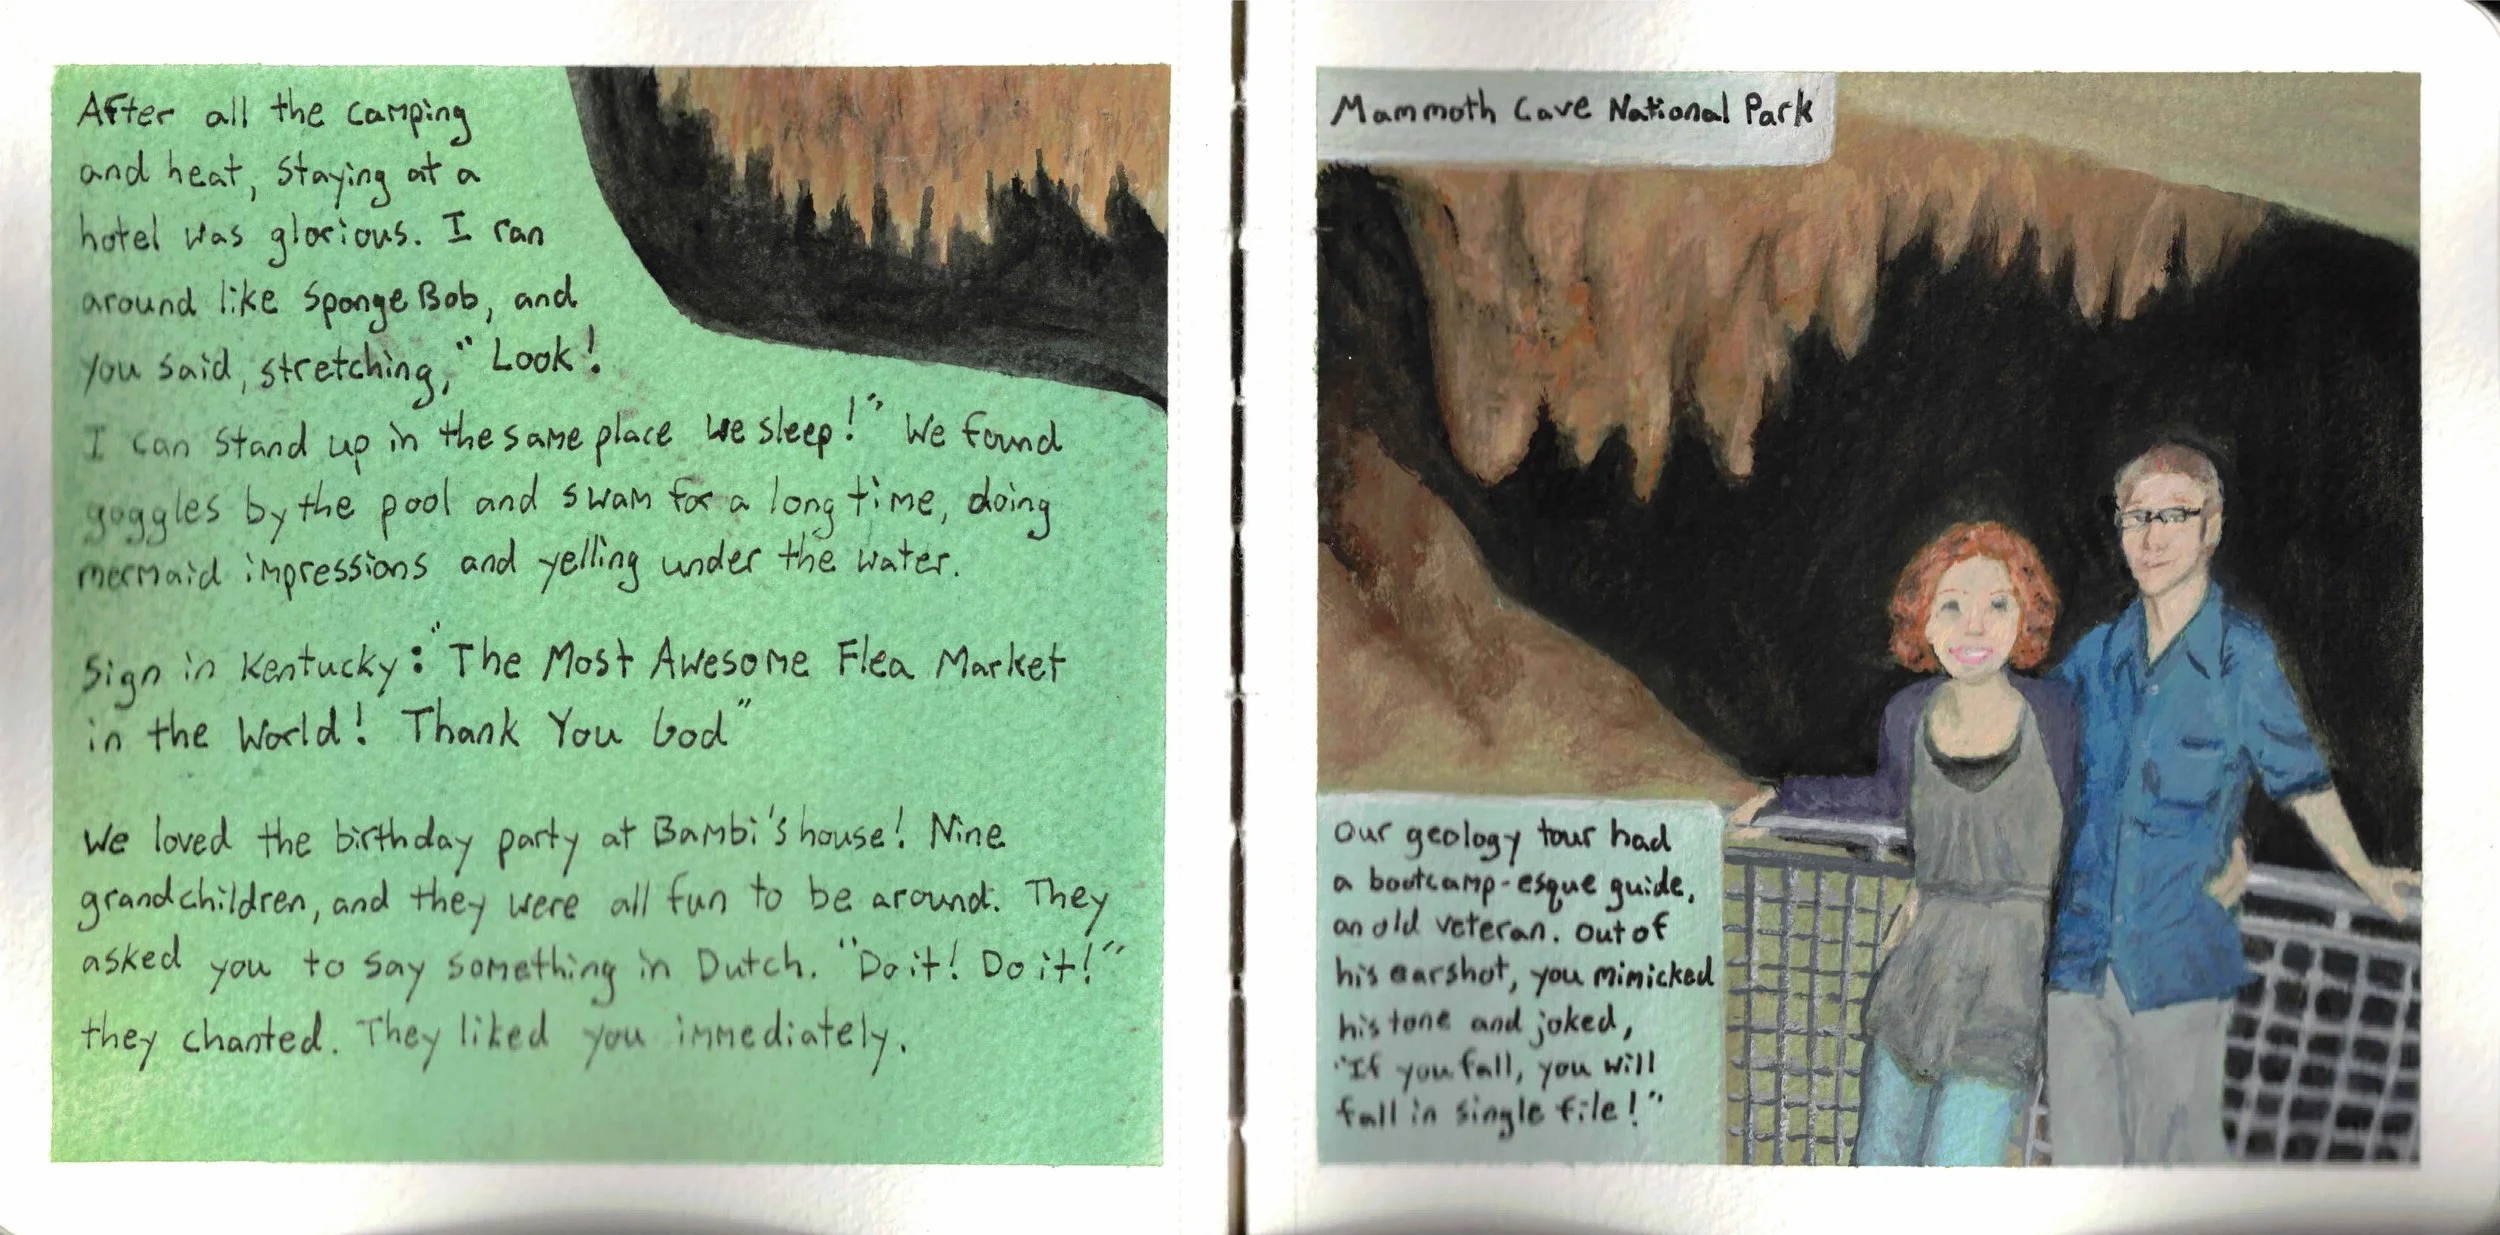 After all the camping
and heat, staying at a
hotel was glorious. I ran
around like SpongeBob, and
you said, stretching, "Look!
I can stand up in the same place we sleep!" We found
goggles by the pool and swam for a long time, doing
mermaid impressions and yelling under the water.
Sign in Kentucky: "The Most Awesome Flea Market
in the World! Thank You God"
We loved the birthday party at Bambi's house! Nine
grandchildren, and they were all fun to be around. They
asked you to say something in Dutch. "Do it! Do it!"
they chanted. They liked you immediately.
Mammoth Cave National Park
Our geology tour had
a bootcamp-esque guide,
an old veteran. Out of
his earshot, you mimicked
his tone and joked,
"If you fall, you will
fall in single file!"